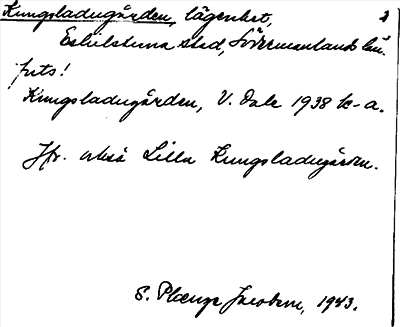 Kungsladugården, lägenhet, 2
Eskilstuna stad, Södermanlands län.
finns!
Kungsladugården, V. Dale 1938 k-a.
Jfr. också Lilla Kungsladugården.
S. Plænge Jacobson, 1943.